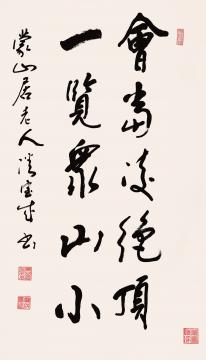 會當凌絕頂
一覽眾山小
蒙山居老人